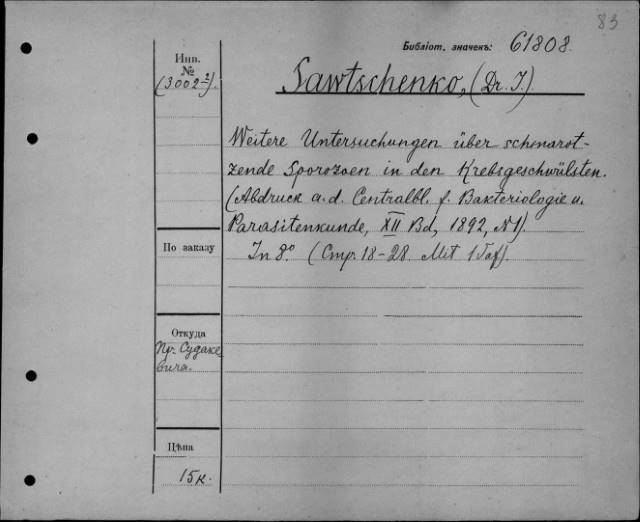 83
Библіот. значекъ: 61808.
Инв.
№
(3002²).
Sawtschenko, (Dr. I.)
Weitere Untersuchungen über schmarot-
zende Sporozoen in den Krebsgeschwülsten.
(Abdruck a. d. Centralbl. f. Bakteriologie u.
Parasitenkunde, XII Bd, 1892, N1).
In 8.° (Стр. 18-28. Mit 1 Taf).
По заказу
Откуда
Пр. Судаке
вича.
Цѣна
15к.